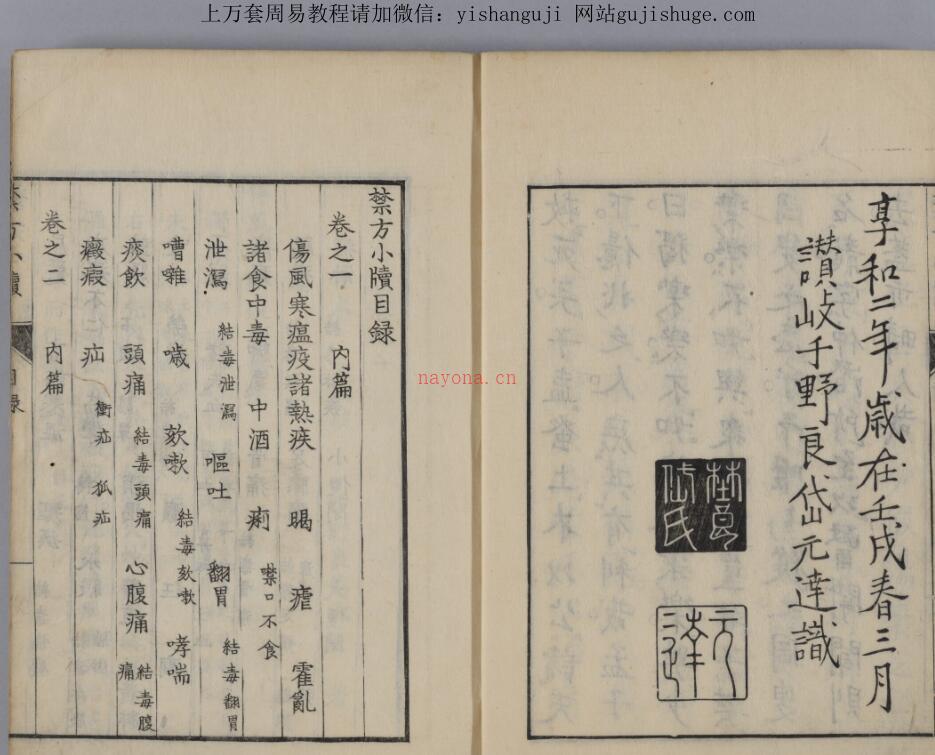 上万套周易教程请加微信：yishanguji 网站gujishuge.com
享和二年歳在壬戌春三月
讃岐千野良岱元達識
岱氏
元達
nayona.cn
禁方小牘目録
卷之一 内篇
傷風寒瘟疫諸熱疾 暍 瘧 霍亂
諸食中毒 中酒 痢 噤口不食
泄瀉 結毒泄瀉 嘔吐 翻胃 結毒翻胃
嘈雜 噦 欬嗽 結毒欬嗽 哮喘
痰飲 頭痛 結毒頭痛 心腹痛 結毒腹痛
癥瘕不仁疝 衝疝 狐疝
卷之二 内篇